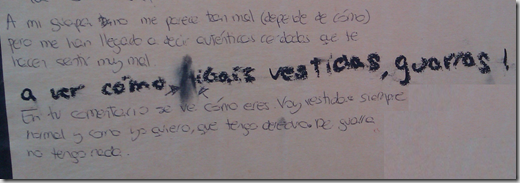 A mi guapa no me parece tan mal (depende de cómo)
pero me han llegado a decir auténticas cerdadas que te
hacen sentir muy mal.
a ver cómo vestidas, guarras!
En tu comentario se ve cómo eres. Voy vestida siempre
normal y como yo quiero, que tengo derecho. De guarra
no tengo nada.